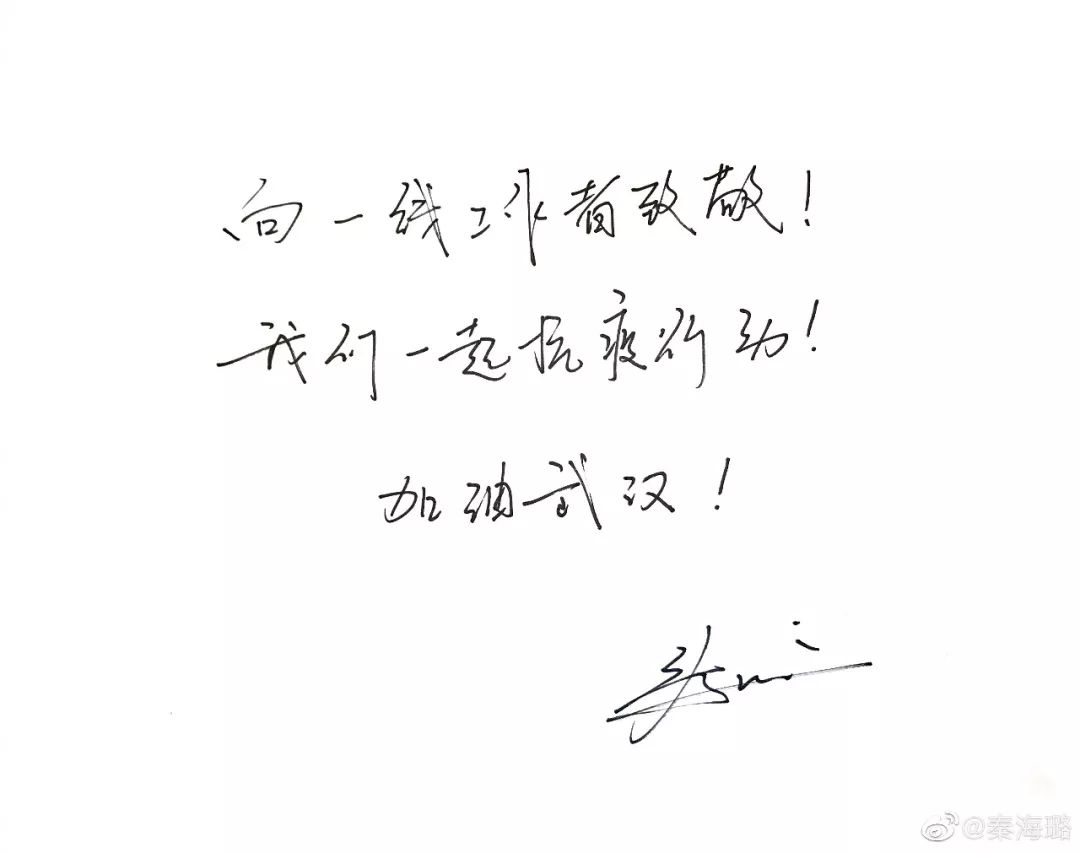 向一线工作者致敬！
我们一起抗疫行动！
加油武汉！
@秦海璐